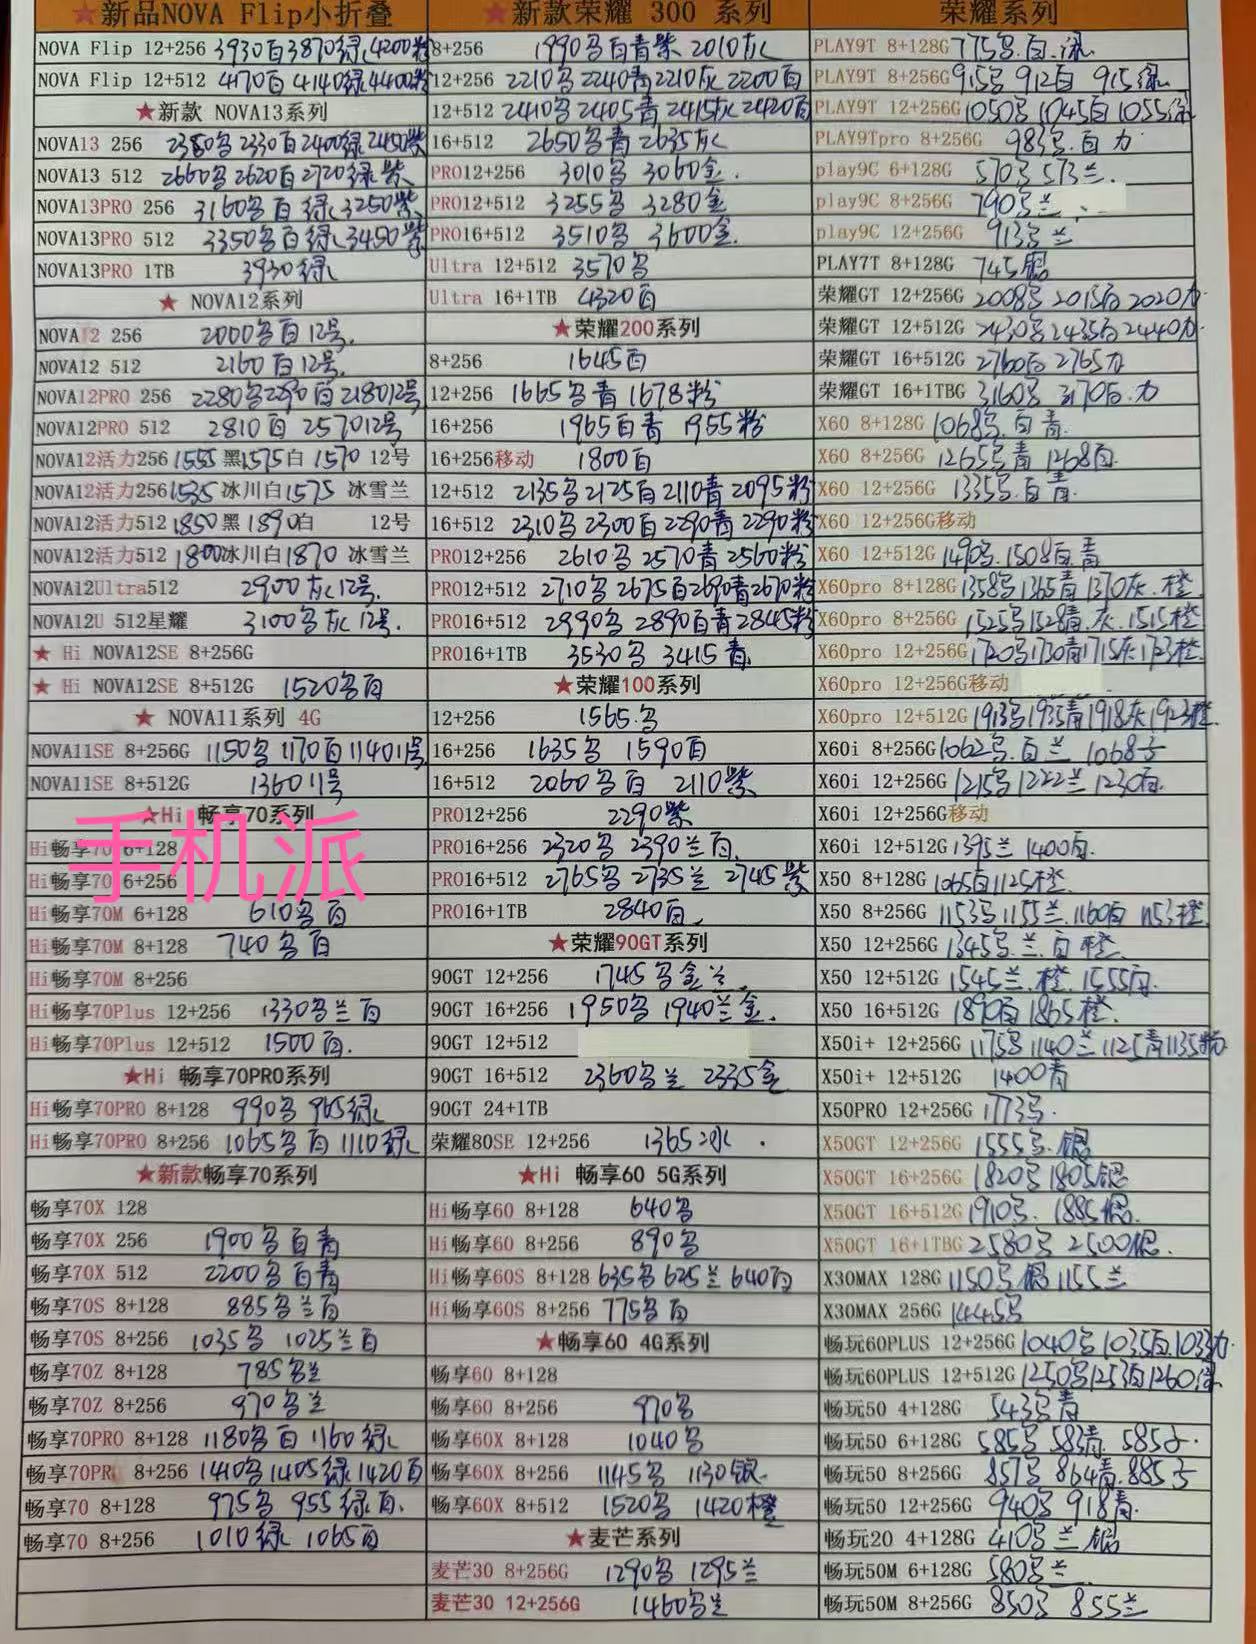 ★新品NOVA Flip小折叠
NOVA Flip 12+256 3930白3870绿4200粉
NOVA Flip 12+512 4170白4140绿4400粉
★新款 NOVA13系列
NOVA13 256 2380多2330白2400绿2450紫
NOVA13 512 2660多2620白2720绿紫
NOVA13PRO 256 3160多白绿3250紫
NOVA13PRO 512 3350多白绿3450紫
NOVA13PRO 1TB 3930绿
★ NOVA12系列
NOVA12 256 2000多白12号.
NOVA12 512 2160白12号.
NOVA12PRO 256 2280多2290白218012号
NOVA12PRO 512 2810白257012号
NOVA12活力256 1555黑1575白1570 12号
NOVA12活力256 1535冰川白1575 冰雪兰
NOVA12活力512 1850黑1890白 12号
NOVA12活力512 1800冰川白1870 冰雪兰
NOVA12Ultra512 2900灰12号.
NOVA12U 512星耀 3100多灰12号.
★ Hi NOVA12SE 8+256G
★ Hi NOVA12SE 8+512G 1520多白
★ NOVA11系列 4G
NOVA11SE 8+256G 1150多1170白114011号
NOVA11SE 8+512G 136011号
★Hi 畅享70系列
手机派
Hi畅享70 6+128
Hi畅享70 6+256
Hi畅享70M 6+128 610多白
Hi畅享70M 8+128 740多白
Hi畅享70M 8+256
Hi畅享70Plus 12+256 1330多兰白
Hi畅享70Plus 12+512 1500白.
★Hi 畅享70PRO系列
Hi畅享70PRO 8+128 990多965绿
Hi畅享70PRO 8+256 1065多白1110绿
★新款畅享70系列
畅享70X 128
畅享70X 256 1900多白青
畅享70X 512 2200多白青
畅享70S 8+128 885多兰白
畅享70S 8+256 1035多 1025兰白
畅享70Z 8+128 785多兰
畅享70Z 8+256 970多兰
畅享70PRO 8+128 1180多白1160绿
畅享70PR 8+256 1410多1405绿1420白
畅享70 8+128 975多 955绿白.
畅享70 8+256 1010绿 1065白
★新款荣耀 300 系列
8+256 1990多白青紫 2010灰
12+256 2210多2240青2210灰2200白
12+512 2410多2405青2415灰2420白
16+512 2650多青2635灰
PRO12+256 3010多 3060金.
PRO12+512 3255多 3280金
PRO16+512 3510多 3600金.
Ultra 12+512 3570多
Ultra 16+1TB 4320白
★荣耀200系列
8+256 1645白
12+256 1665多青1678粉
16+256 1965白青 1955粉
16+256移动 1800白
12+512 2135多2125白2110青2095粉
16+512 2310多2300白2290青2290粉
PRO12+256 2610多2570青2560粉
PRO12+512 2710多2675白2690青2670粉
PRO16+512 2990多2890白青2845粉
PRO16+1TB 3530多3415青
★荣耀100系列
12+256 1565.多
16+256 1635多 1590白
16+512 2060多白 2110紫
PRO12+256 2290紫
PRO16+256 2320多2390兰白.
PRO16+512 2765多2735兰 2745紫
PRO16+1TB 2840白
★荣耀90GT系列
90GT 12+256 1745多金兰.
90GT 16+256 1950多1940兰金.
90GT 12+512
90GT 16+512 2360多兰 2335金
90GT 24+1TB
荣耀80SE 12+256 1365冰 .
★Hi 畅享60 5G系列
Hi畅享60 8+128 640多
Hi畅享60 8+256 890多
Hi畅享60S 8+128 635多625兰640白
Hi畅享60S 8+256 775多白
★畅享60 4G系列
畅享60 8+128
畅享60 8+256 970多
畅享60X 8+128 1040多
畅享60X 8+256 1145多 1130银.
畅享60X 8+512 1520多 1420橙
★麦芒系列
麦芒30 8+256G 1290多 1295兰
麦芒30 12+256G 1460多兰
荣耀系列
PLAY9T 8+128G 775多.白.绿
PLAY9T 8+256G 915多 912白 915绿
PLAY9T 12+256G 1050多1045白1055绿
PLAY9Tpro 8+256G 983多.白力
play9C 6+128G 570多573兰.
play9C 8+256G 790多兰
play9C 12+256G 913多兰
PLAY7T 8+128G 745银
荣耀GT 12+256G 2008多 2015白2020力
荣耀GT 12+512G 2430多2435白2440力
荣耀GT 16+512G 2760白 2765力
荣耀GT 16+1TBG 3160多 3170白.力
X60 8+128G 1068多.白青.
X60 8+256G 1265多青1268白.
X60 12+256G 1335多.白青.
X60 12+256G移动
X60 12+512G 1490多.1508白.青
X60pro 8+128G 1358多1365青1370灰.橙
X60pro 8+256G 1525多1528青.灰.1515橙
X60pro 12+256G 1720多1730青1715灰1723橙
X60pro 12+256G移动
X60pro 12+512G 1913多1935青1918灰1923橙
X60i 8+256G 1062多.白兰 1068子
X60i 12+256G 1215多1222兰1230白.
X60i 12+256G移动
X60i 12+512G 1395兰1400白.
X50 8+128G 1065白1125橙
X50 8+256G 1153多1155兰.1160白1153橙
X50 12+256G 1345多.兰.白橙
X50 12+512G 1545兰.橙.1555白.
X50 16+512G 1890白1865橙.
X50i+ 12+256G 1175多1140兰1125青1135粉
X50i+ 12+512G 1400青
X50PRO 12+256G 1773多.
X50GT 12+256G 1555多.银
X50GT 16+256G 1820多1805银
X50GT 16+512G 1910多.1885银.
X50GT 16+1TBG 2580多2500银.
X30MAX 128G 1150多银1155兰
X30MAX 256G 1445多
畅玩60PLUS 12+256G 1040多1035白.1033力
畅玩60PLUS 12+512G 1250多1253白1260绿
畅玩50 4+128G 543多青
畅玩50 6+128G 585多583青.585子.
畅玩50 8+256G 857多864青.885子
畅玩50 12+256G 940多918青.
畅玩20 4+128G 410多兰.银
畅玩50M 6+128G 580多兰
畅玩50M 8+256G 850多 855兰